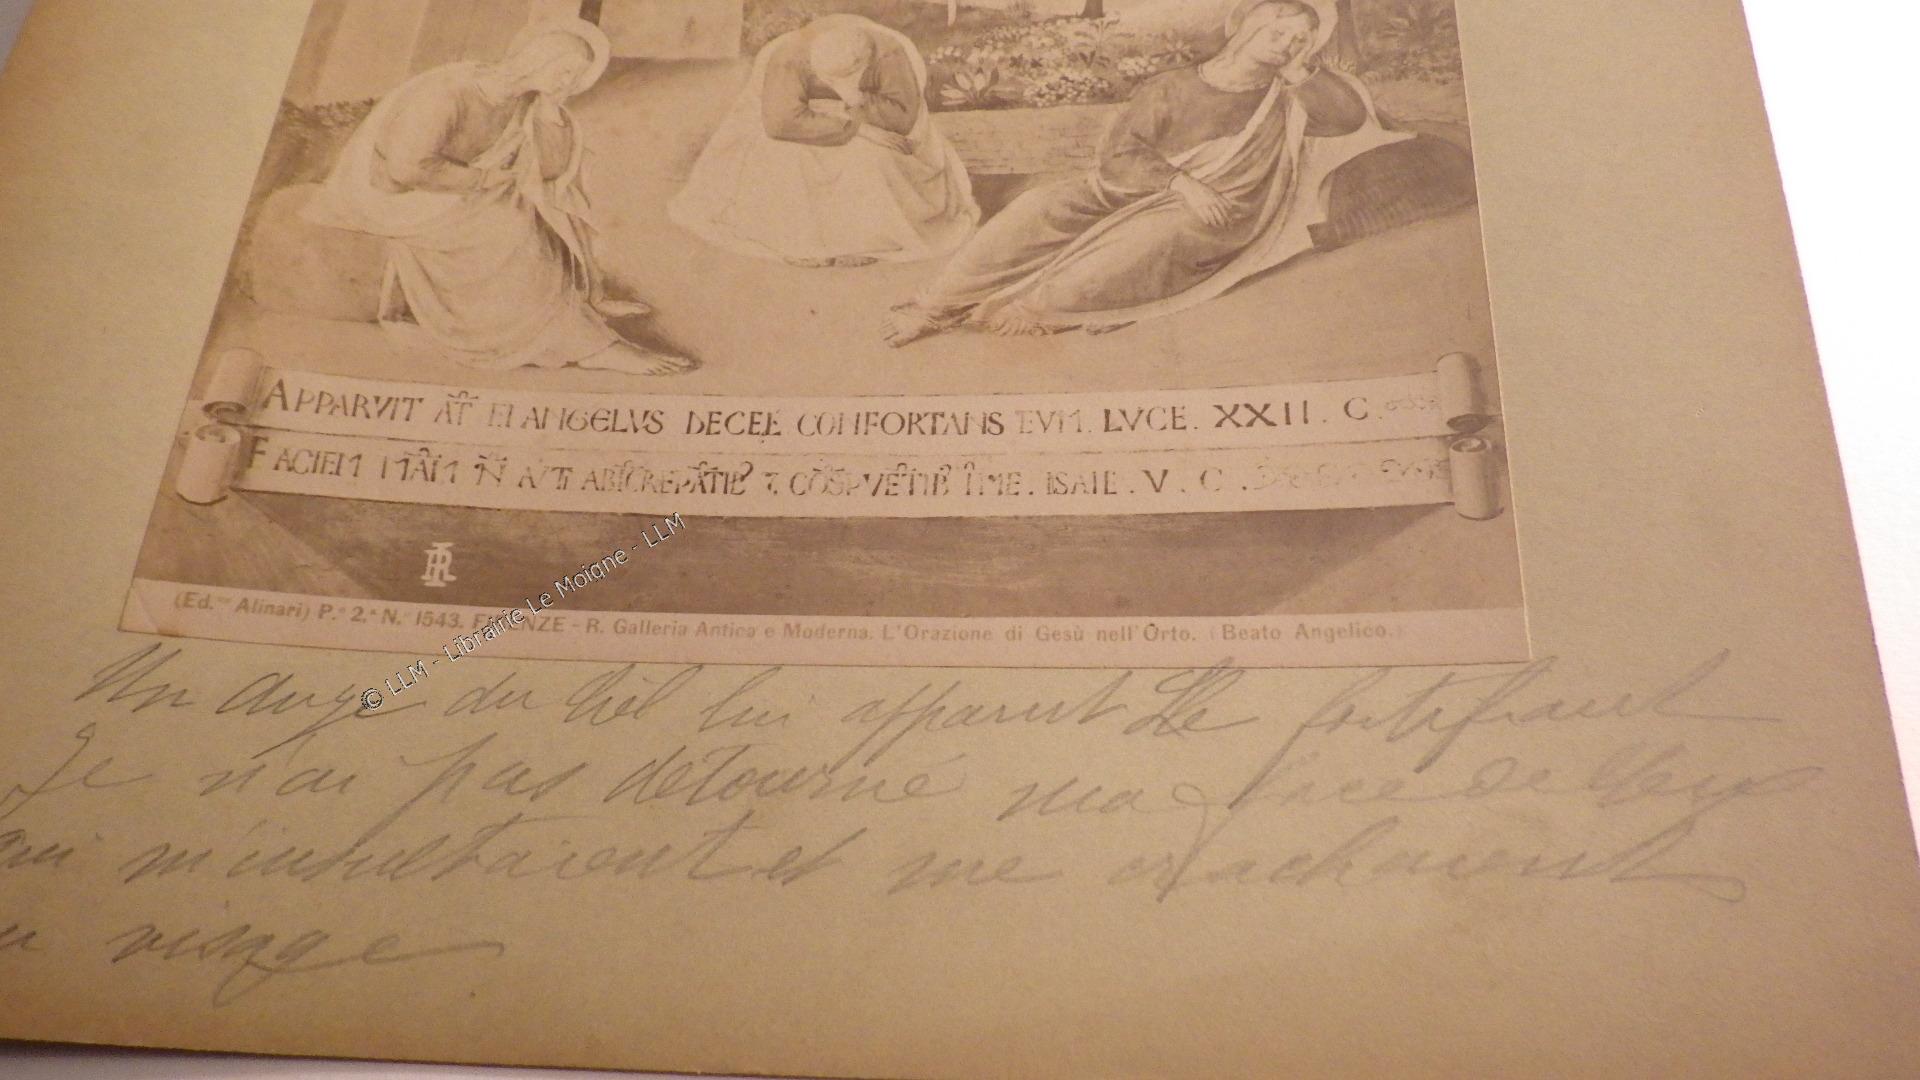 APPARVIT AT EI ANGELVS DECEL CONFORTANS EVM. LVCE. XXII. C.
FACIEM MAM N AVTI ABICREPATIB 7 COSPVETIB IME. ISAIE. V. C.
(Ed.ne Alinari) P.e 2.a N.o 1543. FIRENZE - R. Galleria Antica e Moderna. L'Orazione di Gesù nell' Orto. (Beato Angelico.)
© LLM - Librairie Le Moiane - LLM
Un Ange du Ciel lui apparut Le fortifiant
Je n'ai pas détourné ma face de ceux
qui m'insultaient et me crachaient
au visage